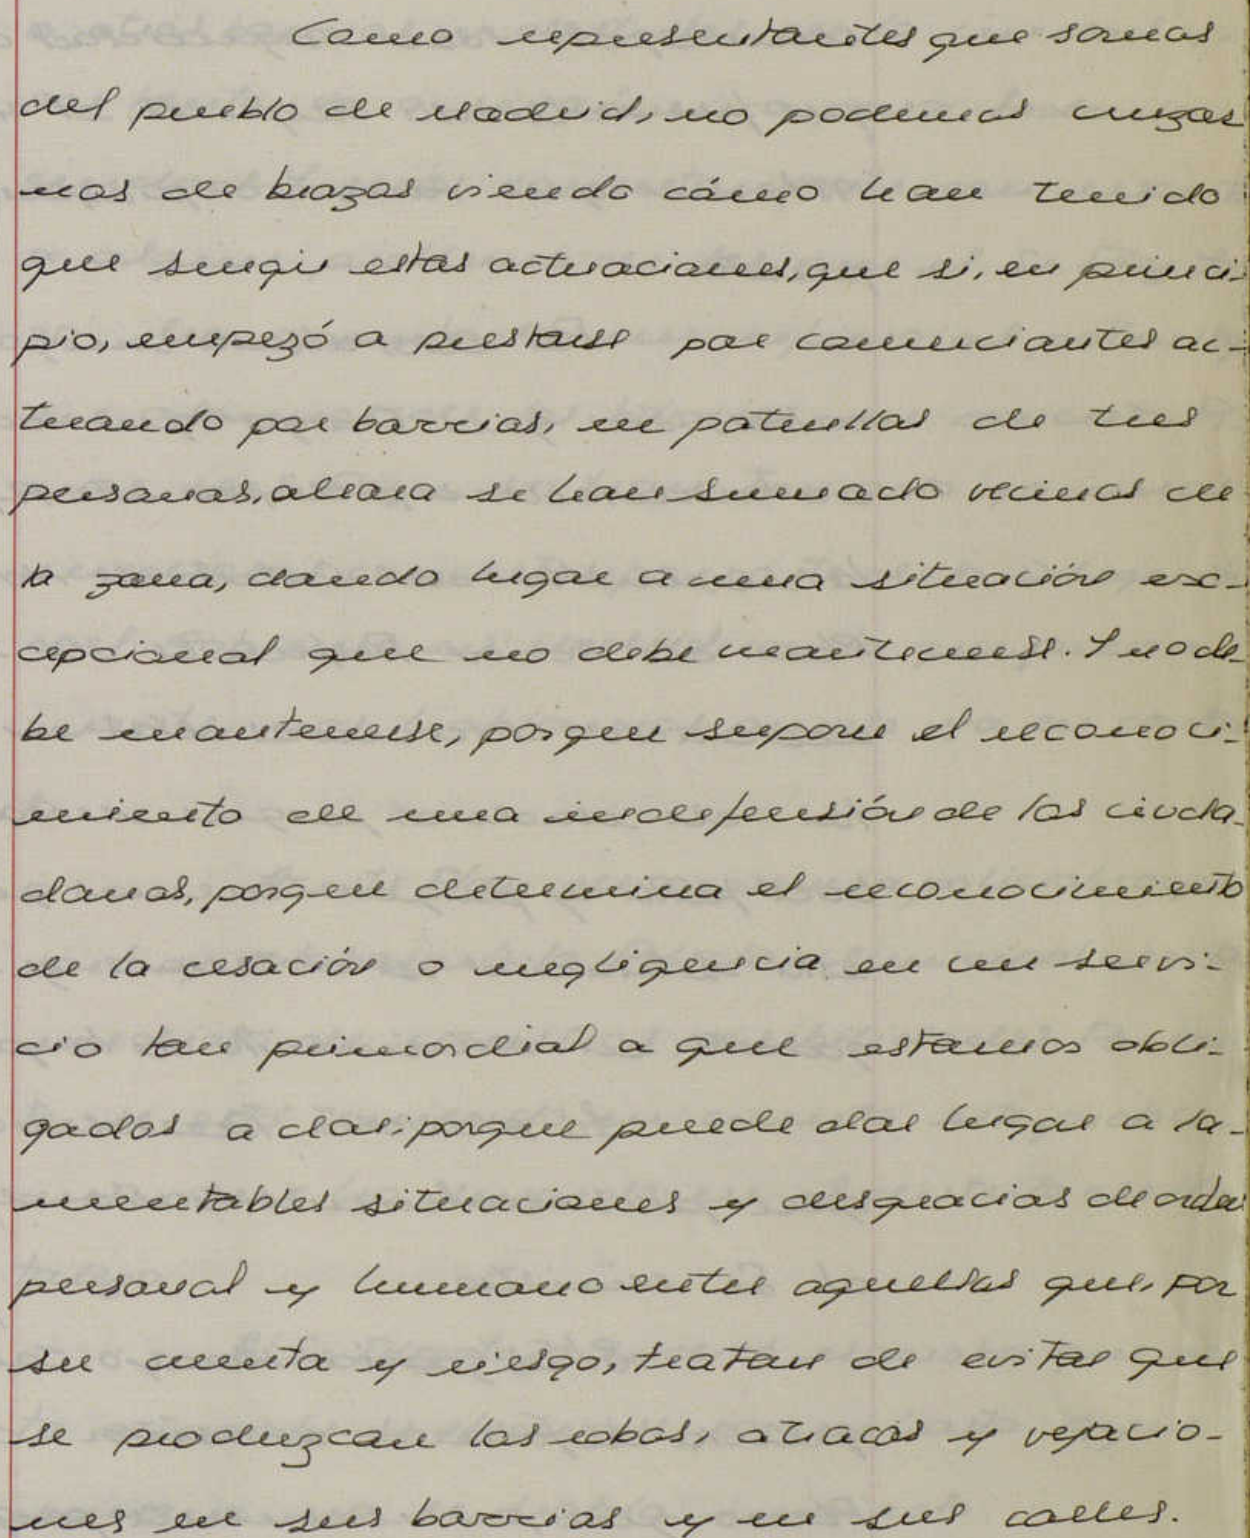 Como representantes que somos
del pueblo de Madrid, no podemos cruzar
nos de brazos viendo cómo han tenido
que surgir estas actuaciones, que si, en princi-
pio, empezó a prestarse por comerciantes ac-
tuando por barrios, en patrullas de tres
personas, ahora se han sumado vecinos de
la zona, dando lugar a una situación ex-
cepcional que no debe mantenerse. Y no de-
be mantenerse, porque supone el reconoci-
miento de una indefensión de los ciuda-
danos, porque determina el reconocimiento
de la cesación o negligencia en un servi-
cio tan primordial a que estamos obli-
gados a dar; porque puede dar lugar a la-
mentables situaciones y desgracias de orden
personal y humano entre aquellos que, por
su cuenta y riesgo, tratan de evitar que
se produzcan los robos, atracos y vejacio-
nes en sus barrios y en sus calles.